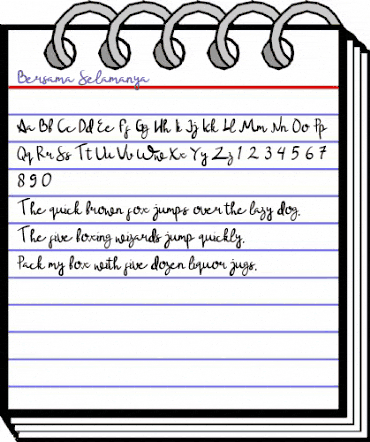 Bersama Selamanya
Aa Bb Cc Dd Ee Ff Gg Hh Ii Jj Kk Ll Mm Nn Oo Pp
Qq Rr Ss Tt Uu Vv Ww Xx Yy Zz 1 2 3 4 5 6 7
8 9 0
The quick brown fox jumps over the lazy dog.
The five boxing wizards jump quickly.
Pack my box with five dozen liquor jugs.